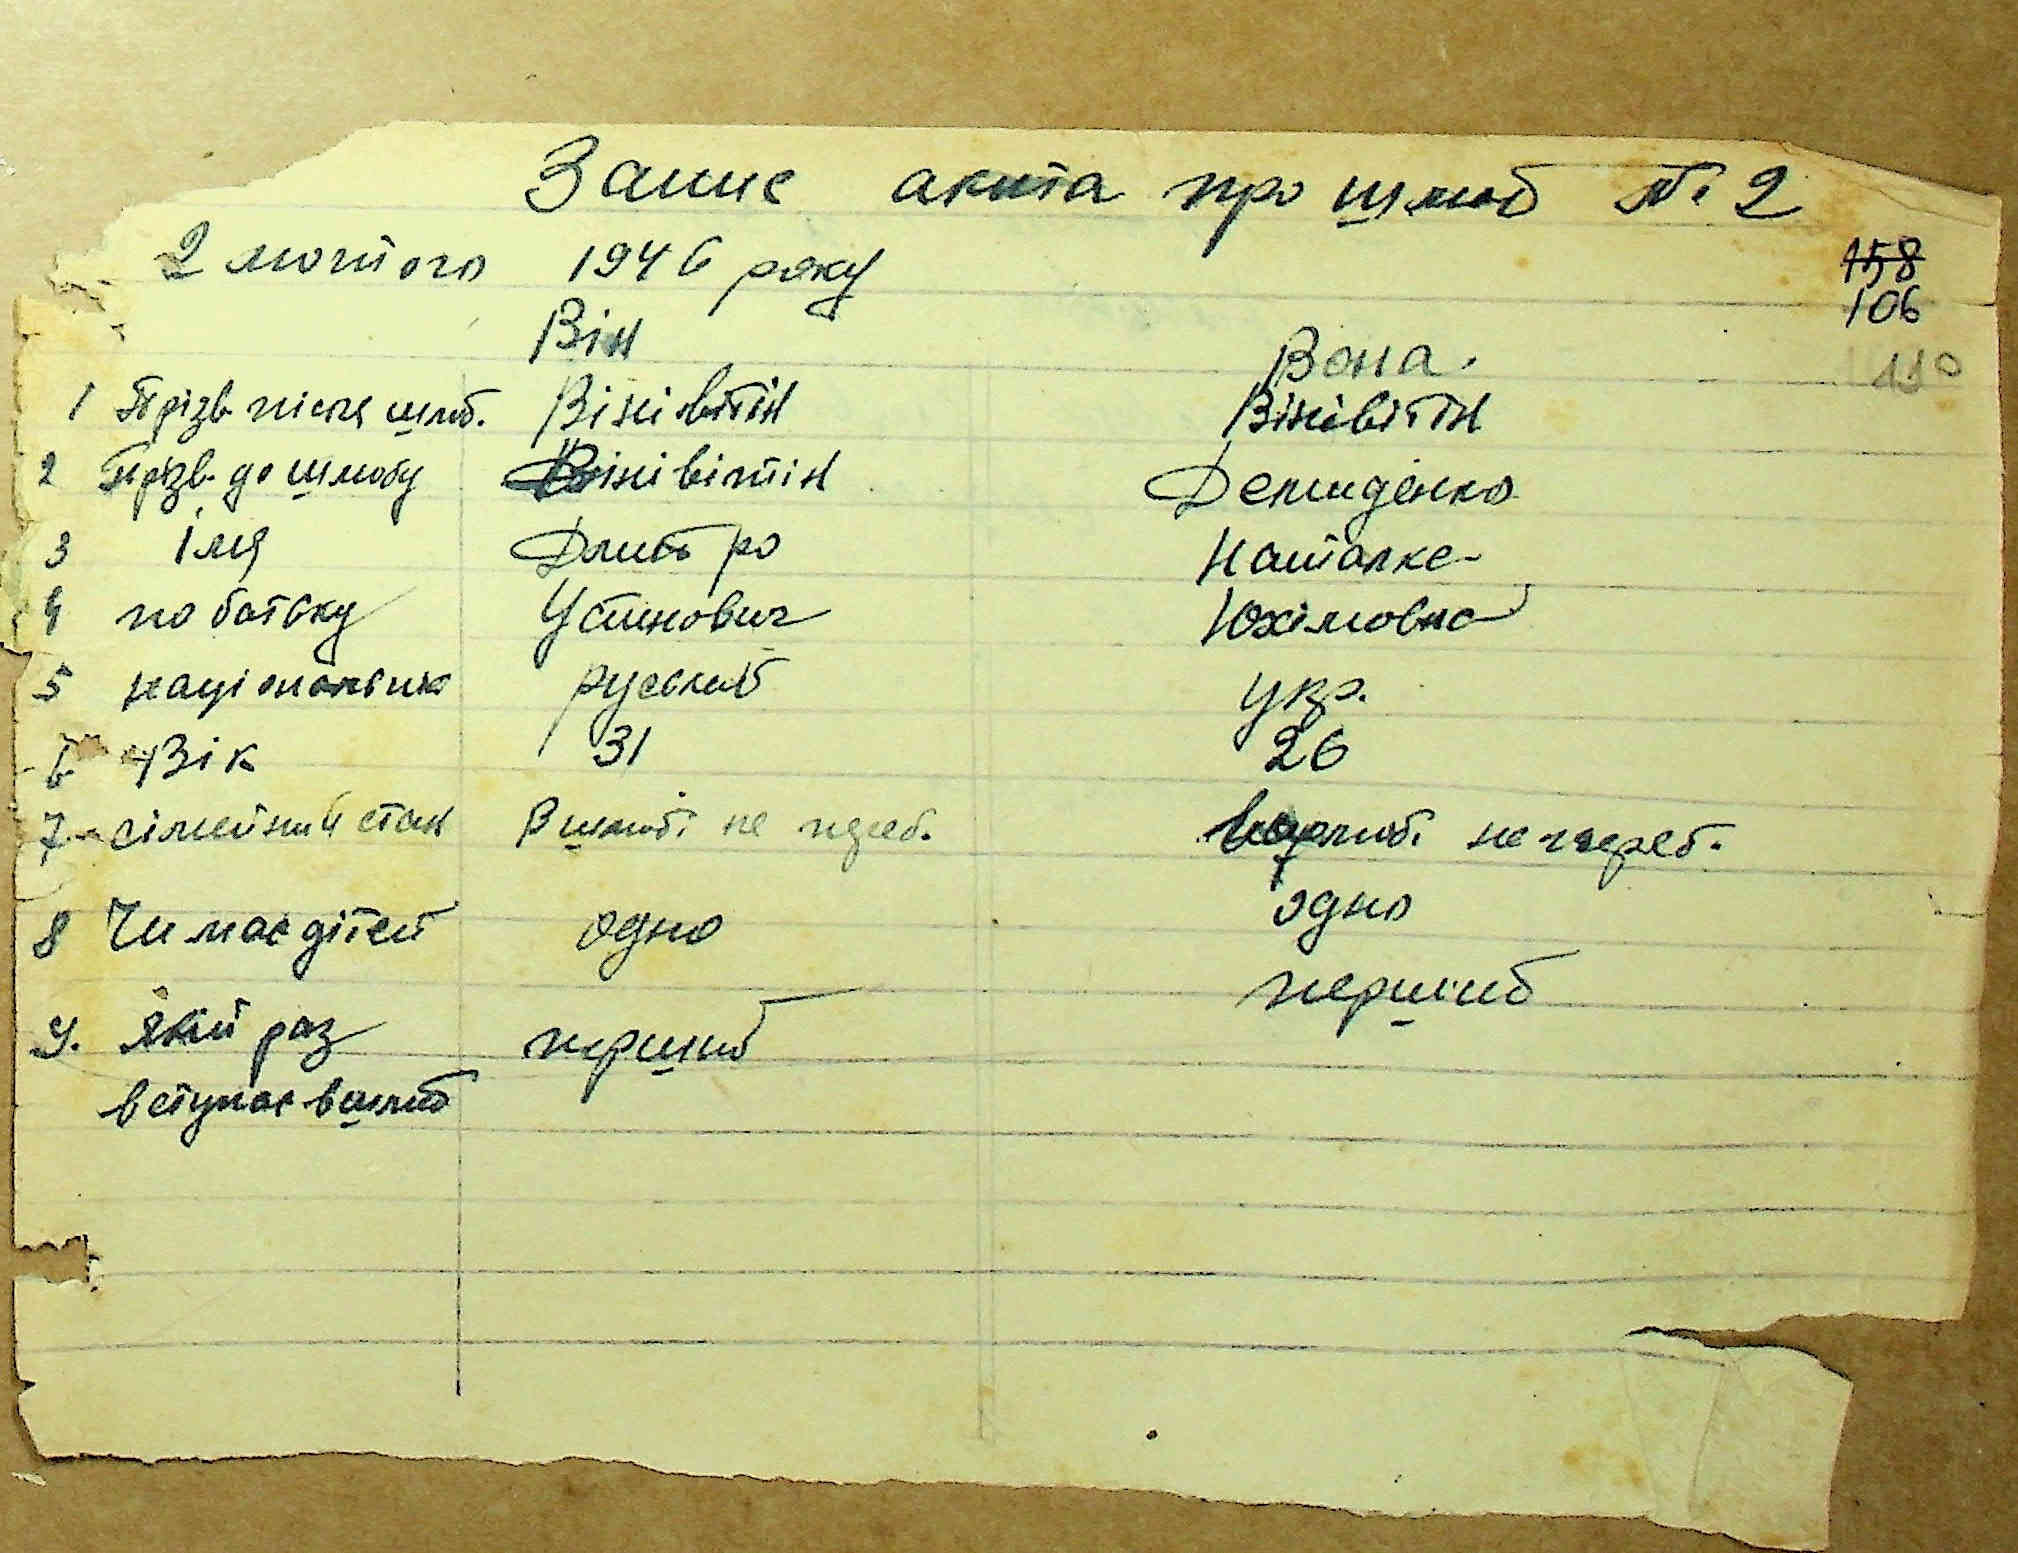 Запис акта про шлюб № 2
2 лютого 1946 року
158
106
110
Він Вона.
1 Прізв. після шлюб. Вінівітін Вінівітін
2 Прізв. до шлюбу Вінівітін Демиденко
3 Імя Дмитро Наталка
4 по батьку Устинович Юхімовна
5 національник руський укр.
6 Вік 31 26
7 сімейний стан В шлюбі не переб. в шлюбі не переб.
8 Чи має дітей одно одно
9. який раз перший перший
вступає в шлюб